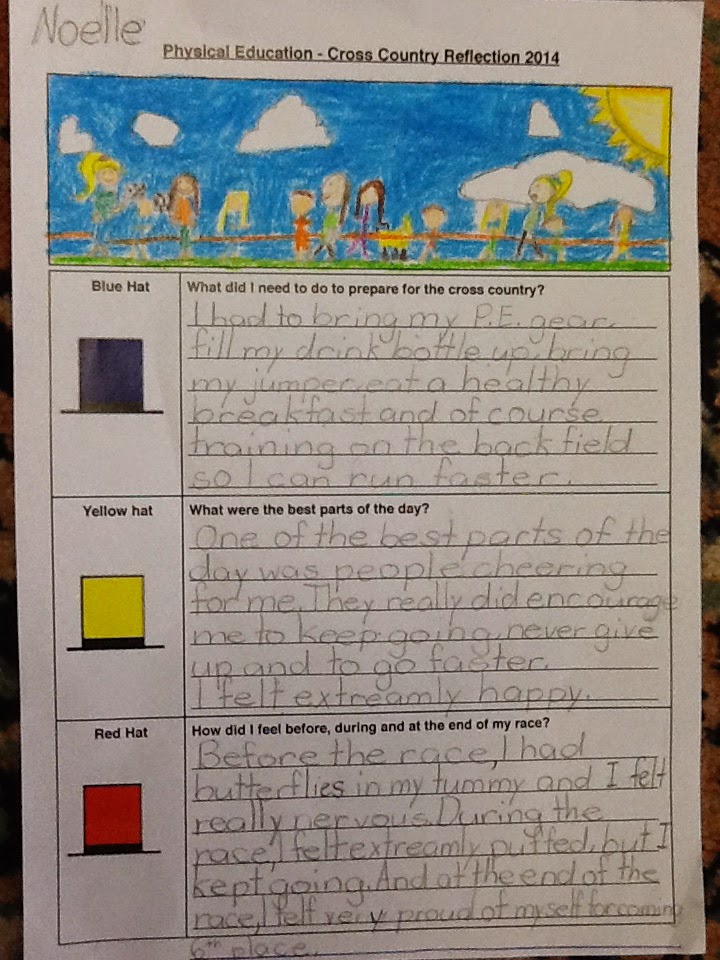 Noelle
Physical Education - Cross Country Reflection 2014
Blue Hat
What did I need to do to prepare for the cross country?
I had to bring my P.E. gear,
fill my drink bottle up, bring
my jumper, eat a healthy
breakfast and of course
training on the back field
so I can run faster.
Yellow hat
What were the best parts of the day?
One of the best parts of the
day was people cheering
for me. They really did encourage
me to keep going, never give
up and to go faster.
I felt extreamly happy.
Red Hat
How did I feel before, during and at the end of my race?
Before the race, I had
butterflies in my tummy and I felt
really nervous. During the
race, I felt extreamly puffed, but I
kept going. And at the end of the
race, I felt very proud of myself for coming
6th place.